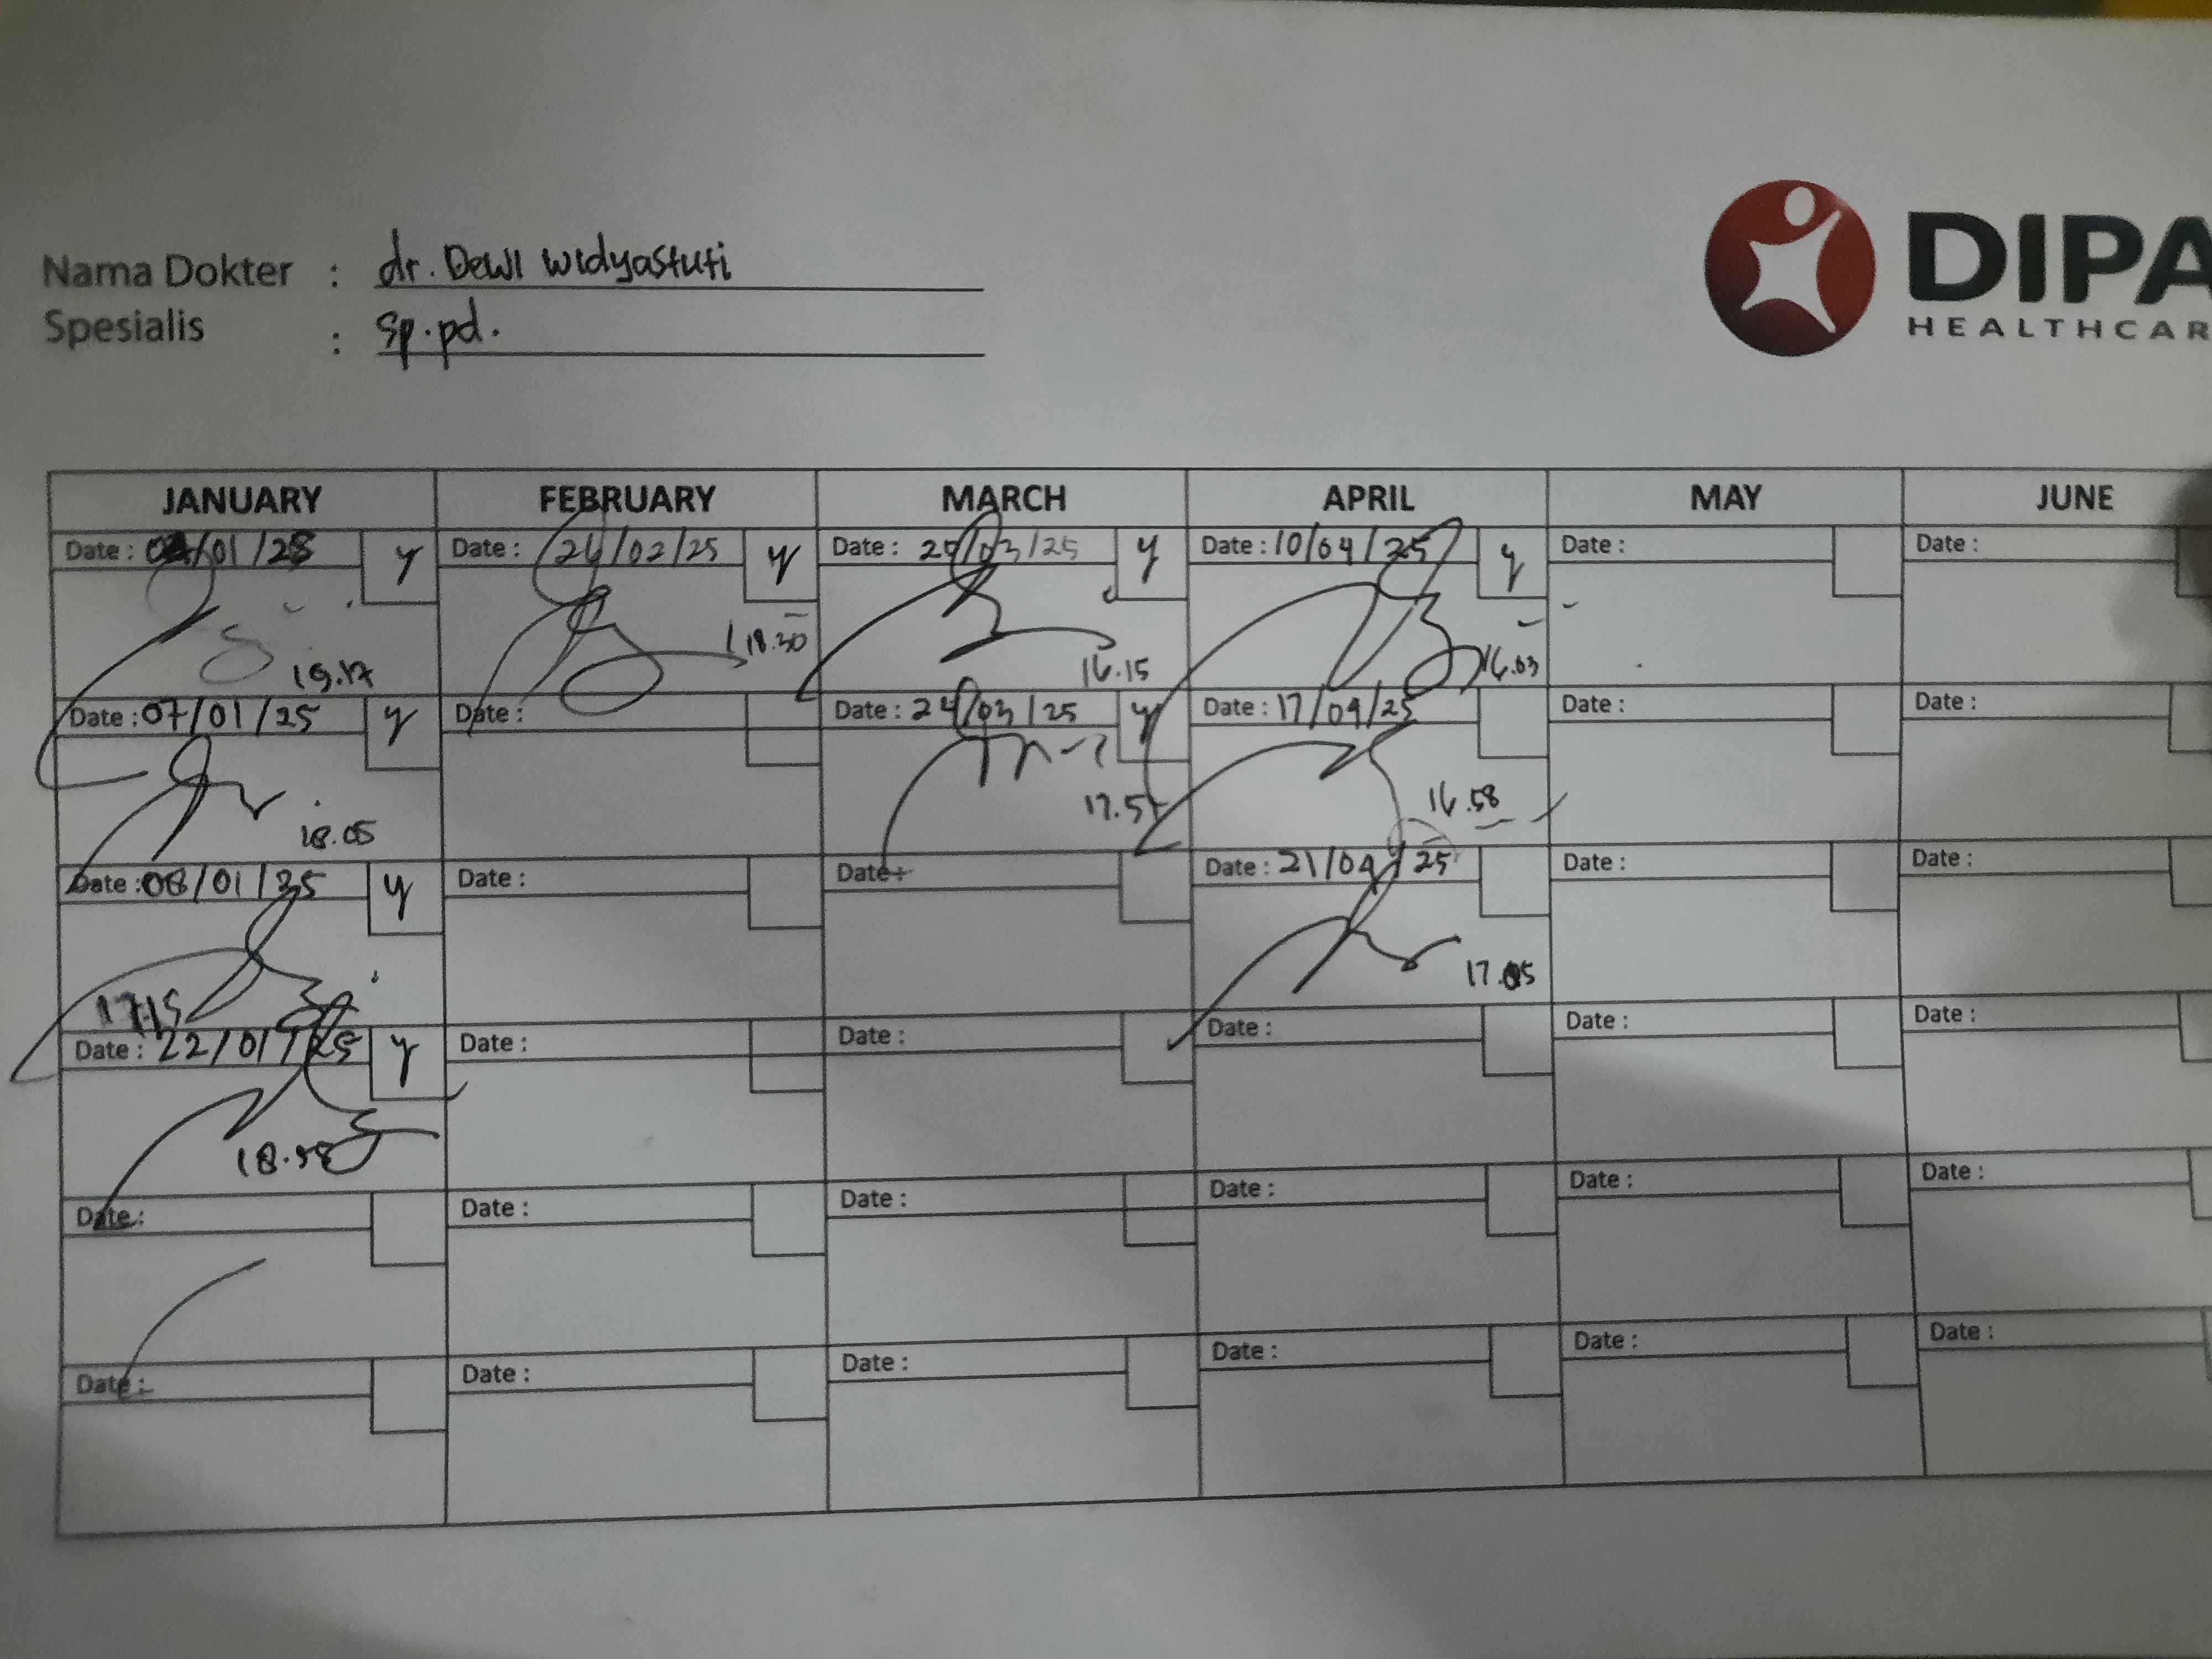 Nama Dokter : dr. Dewi Widyastuti
Spesialis : Sp.pd.
DIPA
HEALTHCAR
JANUARY FEBRUARY MARCH APRIL MAY JUNE
Date : /01/25 y Date : 26/02/25 y Date : /03/25 y Date : 10/04/25 y Date : Date :
18.30 16.15 16.03
Date : 07/01/25 y Date : Date : 24/03/25 y Date : 17/04/25 Date : Date :
18.05 17.57 16.58
Date : 08/01/25 y Date : Date : Date : 21/04/25 Date : Date :
17.15 17.05
Date : 22/01/25 y Date : Date : Date : Date : Date :
18.58
Date : Date : Date : Date : Date : Date :
Date : Date : Date : Date : Date : Date :